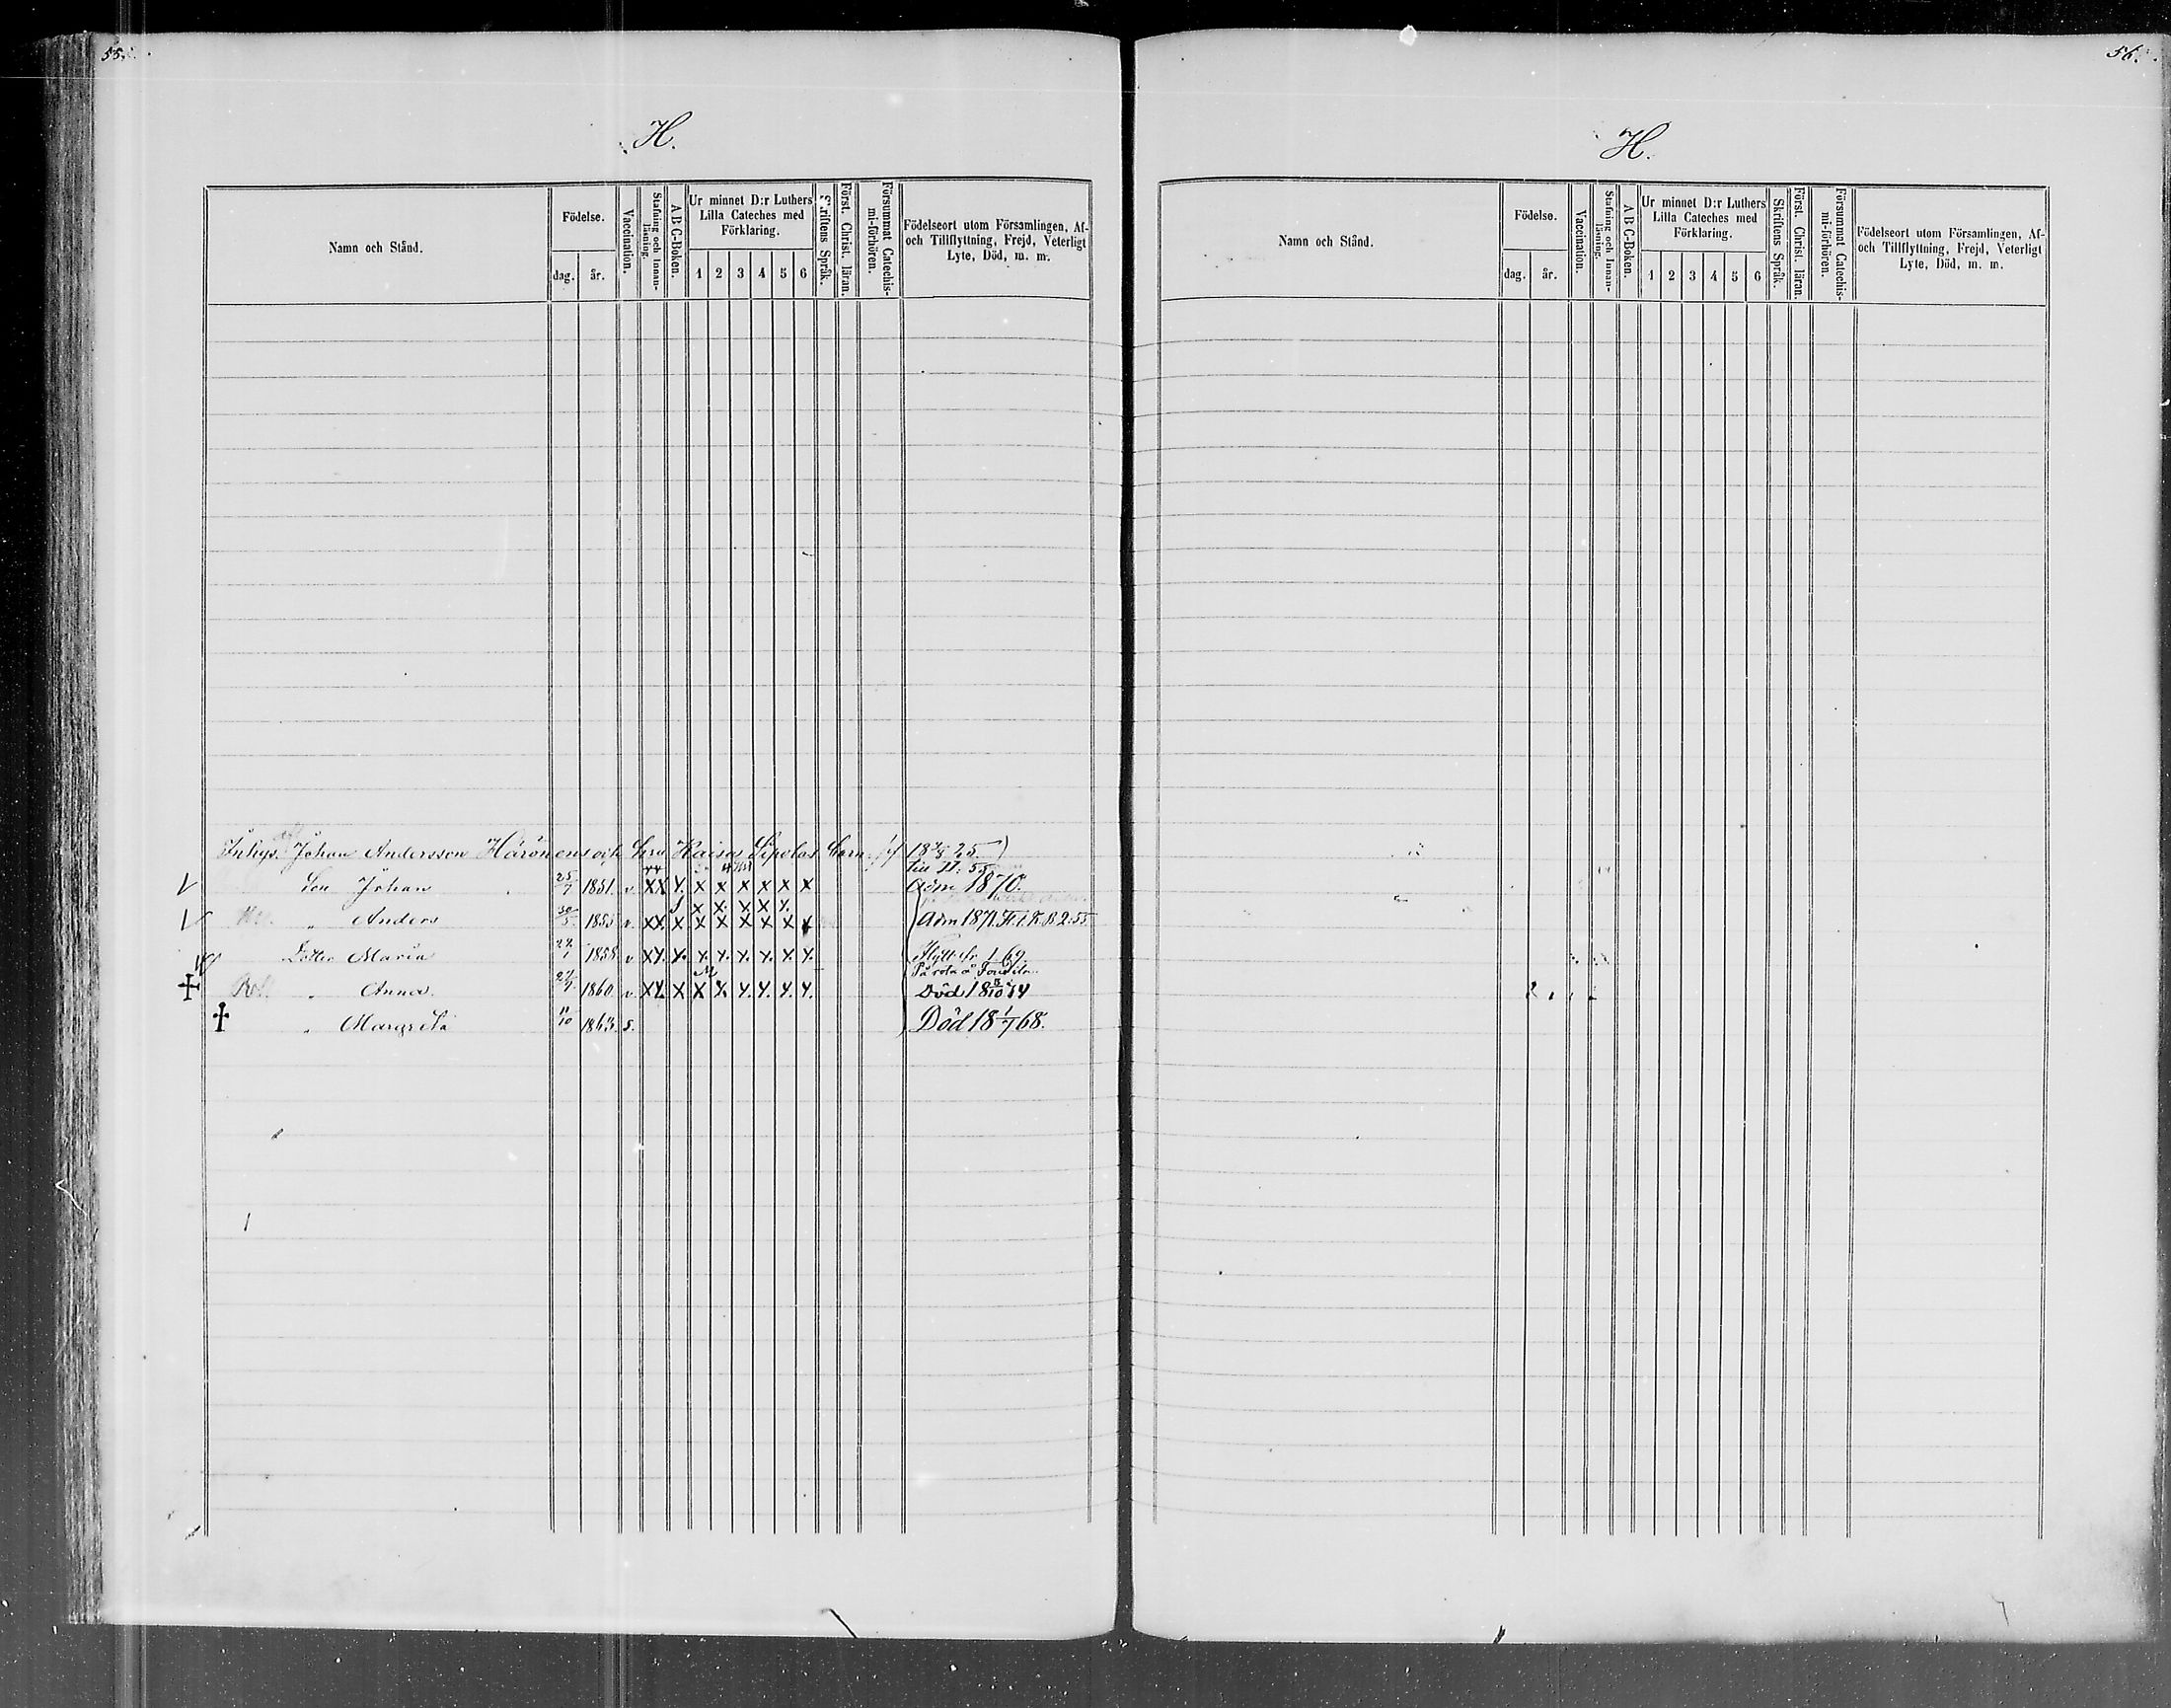 55.
H.
Namn och Stånd.
Födelse.
dag.
år.
Vaccination.
Stafning och Innan-
läsning.
A B C-Boken.
Ur minnet D:r Luthers
Lilla Cateches med
Förklaring.
1 2 3 4 5 6
Skriftens Språk.
Först. Christ. läran.
Försummat Catechis-
mi-förhören.
Födelseort utom Församlingen, Af-
och Tillflyttning, Frejd, Veterligt
Lyte, Död, m. m.
Inhys. Johan Andersson Härönens och hru Kaisa Sipolas barn
V Son Johan 25/7 1851. v XX X. X X X X X X Adm 1870.
V " Anders 30/5 1855 v. XX. X X X X X X X Adm 1871. K. B 2:55
Dotter Maria 1858 v XX. X. X. X. X. X. X. X. Flytt. 69.
" Anna. 27/7 1860 v. XX. X X X. X. X. X. X. Död 18 /10 74
" Margreta 11/10 1863. s. Död 18 1/7 68.
56.
H.
Namn och Stånd.
Födelse.
dag.
år.
Vaccination.
Stafning och Innan-
läsning.
A B C-Boken.
Ur minnet D:r Luthers
Lilla Cateches med
Förklaring.
1 2 3 4 5 6
Skriftens Språk.
Först. Christ. läran.
Försummat Catechis-
mi-förhören.
Födelseort utom Församlingen, Af-
och Tillflyttning, Frejd, Veterligt
Lyte, Död, m. m.